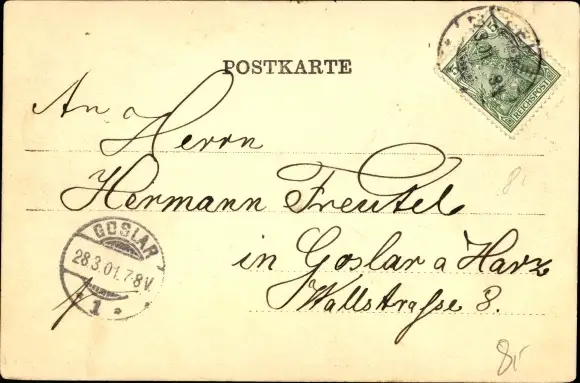 POSTKARTE
REICHSPOST
An
Herrn
Hermann Freutel
in Goslar a Harz
Wallstraße 8.
GOSLAR
28.3.01.7-8V.
1
8,-
8,-